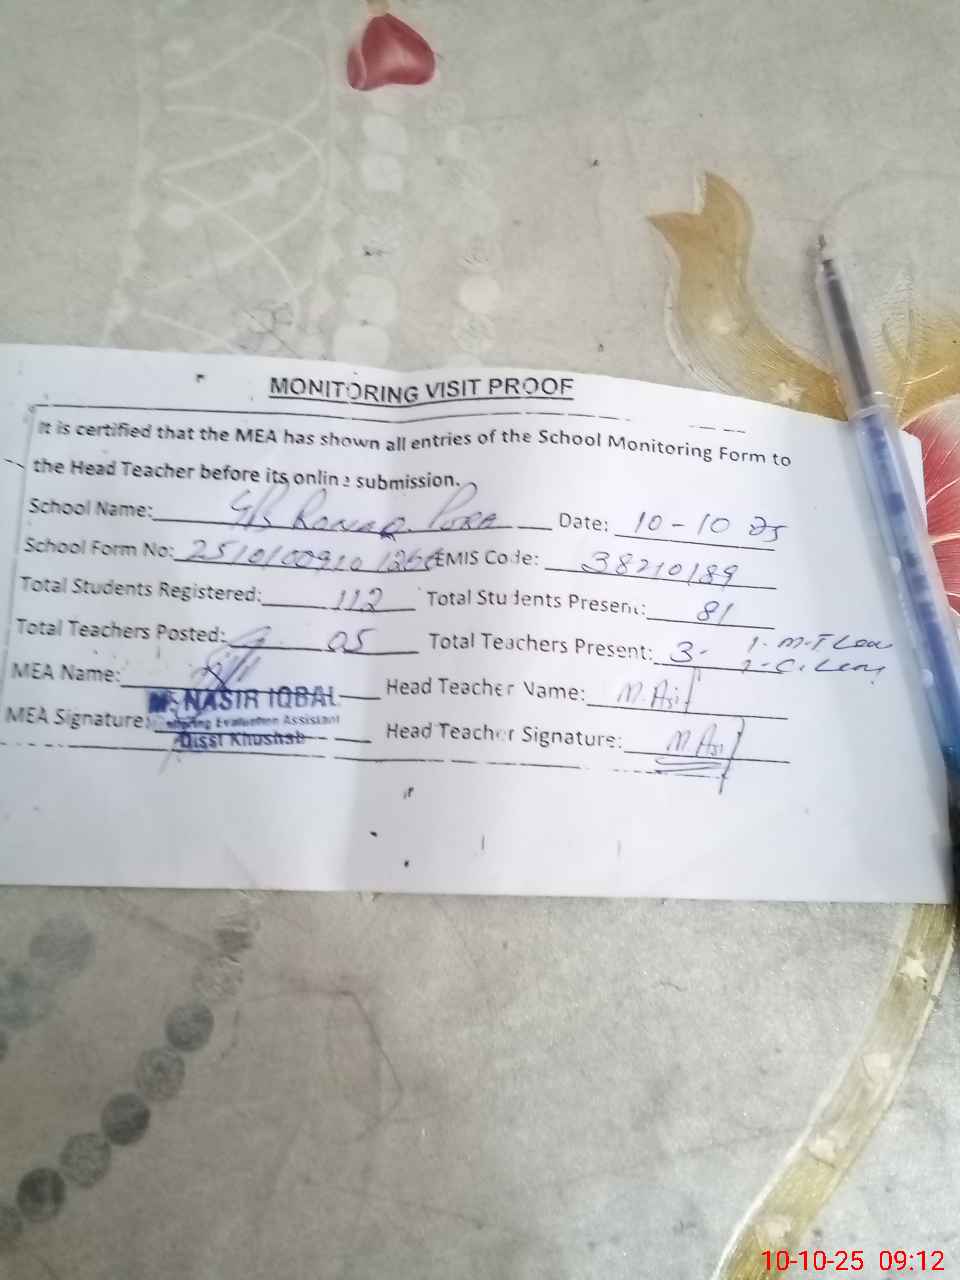 MONITORING VISIT PROOF
It is certified that the MEA has shown all entries of the School Monitoring Form to
the Head Teacher before its online submission.
School Name: Pura Date: 10-10 25
School Form No: EMIS Code: 38210189
Total Students Registered: 112 Total Students Present: 81
Total Teachers Posted: 05 Total Teachers Present: 3- 1. M.T Leav
2. C. Leav
MEA Name: Head Teacher Name: M. Asif
M. NASIR IQBAL
MEA Signature: Evaluation Assistant Head Teacher Signature: M. Asif
Disst Khushab
10-10-25 09:12